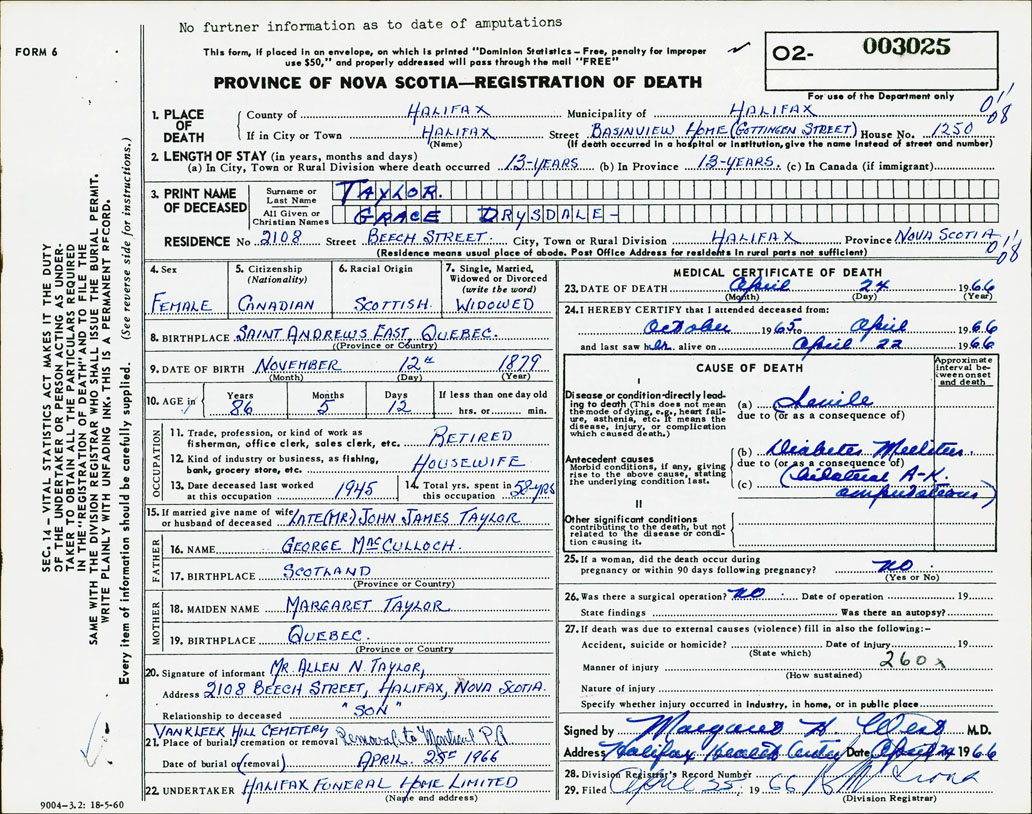 No further information as to date of amputations
FORM 6
This form, if placed in an envelope, on which is printed "Dominion Statistics – Free, penalty for improper
use $50," and properly addressed will pass through the mail "FREE"
O2- 003025
For use of the Department only
PROVINCE OF NOVA SCOTIA—REGISTRATION OF DEATH
SEC. 14 – VITAL STATISTICS ACT MAKES IT THE DUTY
OF THE UNDERTAKER OR PERSON ACTING AS UNDER-
TAKER TO OBTAIN ALL THE PARTICULARS REQUIRED
IN THE "REGISTRATION OF DEATH" AND TO FILE THE
SAME WITH THE DIVISION REGISTRAR WHO SHALL ISSUE THE BURIAL PERMIT.
WRITE PLAINLY WITH UNFADING INK. THIS IS A PERMANENT RECORD.
Every item of information should be carefully supplied. (See reverse side for instructions.)
1. PLACE OF DEATH
County of HALIFAX Municipality of HALIFAX
If in City or Town HALIFAX Street BASINVIEW HOME (GOTTINGEN STREET) House No. 1250
(Name) (If death occurred in a hospital or institution, give the name instead of street and number)
2. LENGTH OF STAY (in years, months and days)
(a) In City, Town or Rural Division where death occurred 13-YEARS (b) In Province 13-YEARS. (c) In Canada (if immigrant)
3. PRINT NAME OF DECEASED
Surname or Last Name TAYLOR.
All Given or Christian Names GRACE DRYSDALE-
RESIDENCE No 2108 Street BEECH STREET. City, Town or Rural Division HALIFAX Province NOVA SCOTIA
(Residence means usual place of abode. Post Office Address for residents in rural parts not sufficient)
4. Sex FEMALE
5. Citizenship (Nationality) CANADIAN
6. Racial Origin SCOTTISH.
7. Single, Married, Widowed or Divorced (write the word) WIDOWED
8. BIRTHPLACE SAINT ANDREWS EAST, QUEBEC.
(Province or Country)
9. DATE OF BIRTH NOVEMBER 12th 1879
(Month) (Day) (Year)
10. AGE in Years 86 Months 5 Days 12 If less than one day old hrs. or min.
OCCUPATION
11. Trade, profession, or kind of work as
fisherman, office clerk, sales clerk, etc. RETIRED
12. Kind of industry or business, as fishing,
bank, grocery store, etc. HOUSEWIFE
13. Date deceased last worked
at this occupation 1945
14. Total yrs. spent in
this occupation 58-yrs
15. If married give name of wife
or husband of deceased LATE (MR) JOHN JAMES TAYLOR
FATHER
16. NAME GEORGE MacCULLOCH.
17. BIRTHPLACE SCOTLAND
(Province or Country)
MOTHER
18. MAIDEN NAME MARGARET TAYLOR
19. BIRTHPLACE QUEBEC.
(Province or Country)
20. Signature of informant MR. ALLEN N. TAYLOR,
Address 2108 BEECH STREET, HALIFAX, NOVA SCOTIA.
Relationship to deceased "SON"
VANKLEEK HILL CEMETERY
21. Place of burial, cremation or removal Removal to Montreal P.Q
Date of burial or (removal) APRIL. 25th 1966
22. UNDERTAKER HALIFAX FUNERAL HOME LIMITED
(Name and address)
9004–3.2: 18-5-60
MEDICAL CERTIFICATE OF DEATH
23. DATE OF DEATH April 24 1966
(Month) (Day) (Year)
24. I HEREBY CERTIFY that I attended deceased from:
October 1965 to April 1966
and last saw her alive on April 22 1966
CAUSE OF DEATH
Approximate interval between onset and death
I
Disease or condition directly lead-
ing to death (This does not mean
the mode of dying, e.g., heart fail-
ure, asthenia, etc. It means the
disease, injury, or complication
which caused death.)
(a) Senile
due to (or as a consequence of)
Antecedent causes
Morbid conditions, if any, giving
rise to the above cause, stating
the underlying condition last.
(b) Diabetes Mellitus.
due to (or as a consequence of)
(c) (Bilateral A-K.
amputations)
II
Other significant conditions
contributing to the death, but not
related to the disease or condi-
tion causing it.
25. If a woman, did the death occur during
pregnancy or within 90 days following pregnancy? no
(Yes or No)
26. Was there a surgical operation? no Date of operation 19
State findings Was there an autopsy?
27. If death was due to external causes (violence) fill in also the following:–
Accident, suicide or homicide? Date of injury 19
(State which)
260x
Manner of injury
(How sustained)
Nature of injury
Specify whether injury occurred in industry, in home, or in public place
Signed by Margaret H West M.D.
Address Halifax Health Centre Date April 24 1966
28. Division Registrar's Record Number
29. Filed April 25, 1966
(Division Registrar)